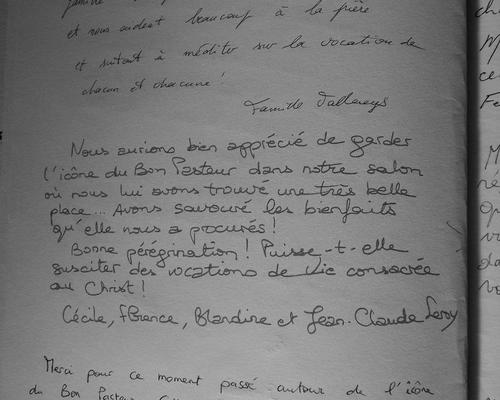 famille
et nous aident beaucoup à la prière
et surtout à méditer sur la vocation de
chacun et chacune !
Famille
Nous aurions bien apprécié de garder
l'icône du Bon Pasteur dans notre salon
où nous lui avons trouvé une très belle
place... Avons savouré les bienfaits
qu'elle nous a procurés !
Bonne pérégrination ! Puisse-t-elle
susciter des vocations de vie consacrée
au Christ !
Cécile, Florence, Blandine et Jean-Claude Leroy
Merci pour ce moment passé autour de l'icône
du Bon Pasteur